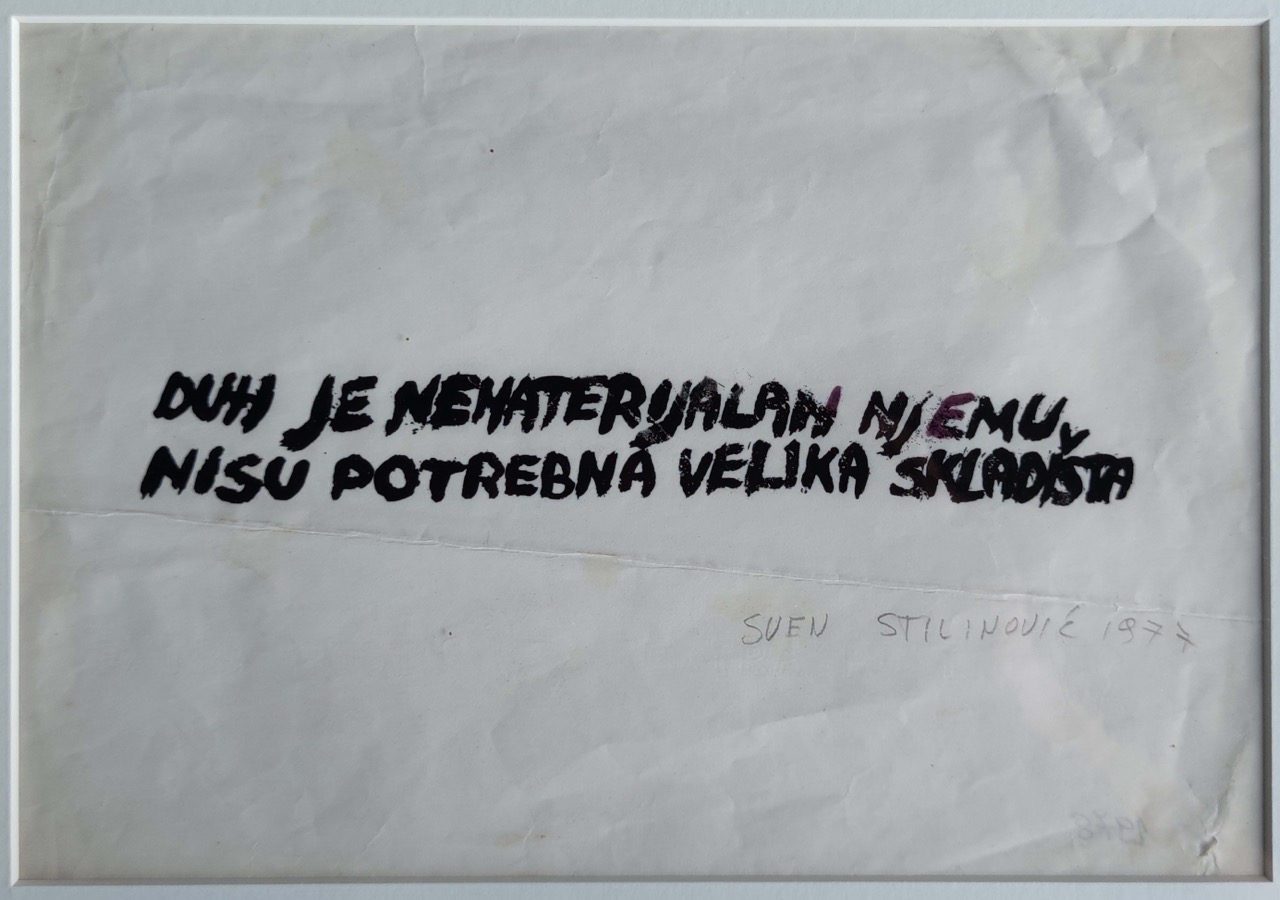 DUH JE NEMATERIJALAN NJEMU
NISU POTREBNA VELIKA SKLADIŠTA
SVEN STILINOVIĆ 1977